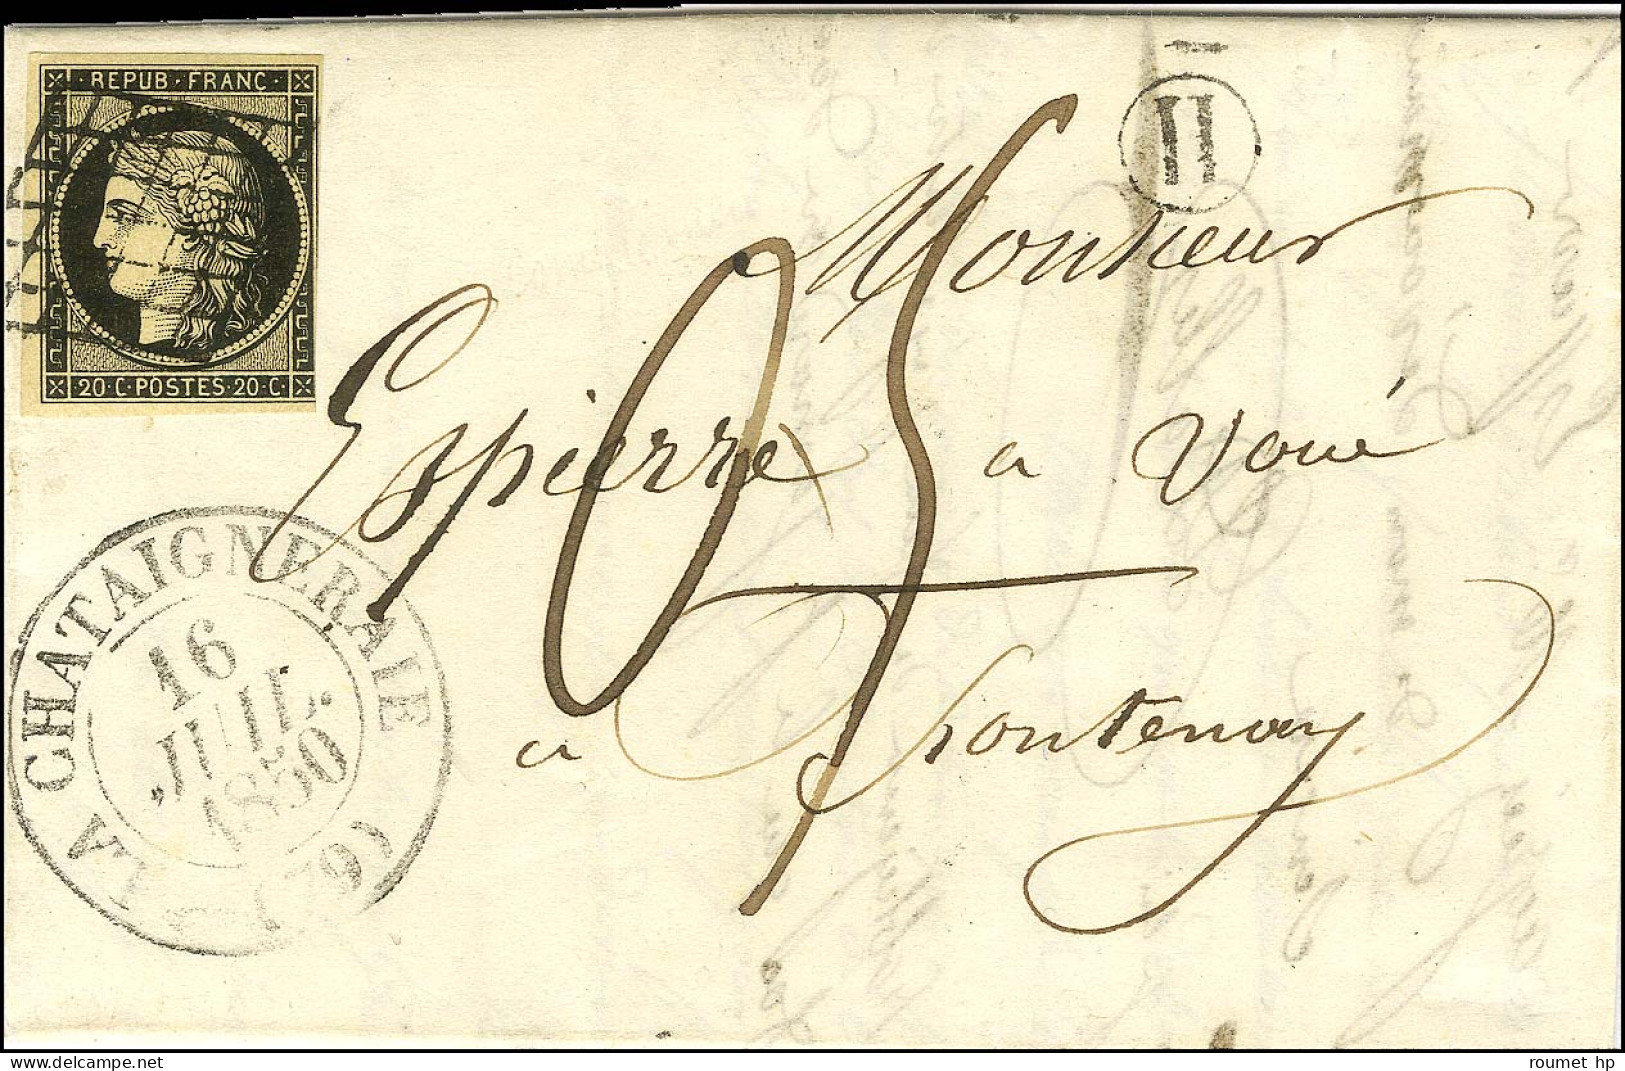 · REPUB · FRANC ·
· 20 · C · POSTES · 20 · C ·
H
Monsieur
Espierre a Voué
a Fontenay
LA CHATAIGNERAIE
16
JUIL.
1850
(79)
roumet hp